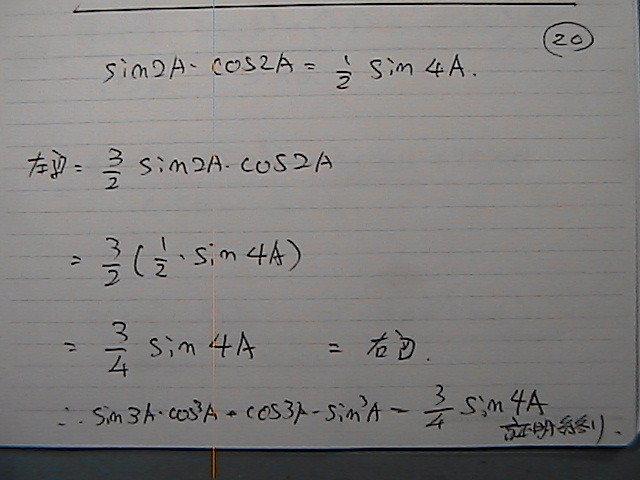 ⑳
sin2A・cos2A = 1/2 sin 4A.
左辺 = 3/2 sin2A・cos2A
= 3/2 (1/2・sin 4A)
= 3/4 sin 4A = 右辺.
∴ sin3A・cos³A + cos3A・sin³A = 3/4 sin 4A
証明終り.